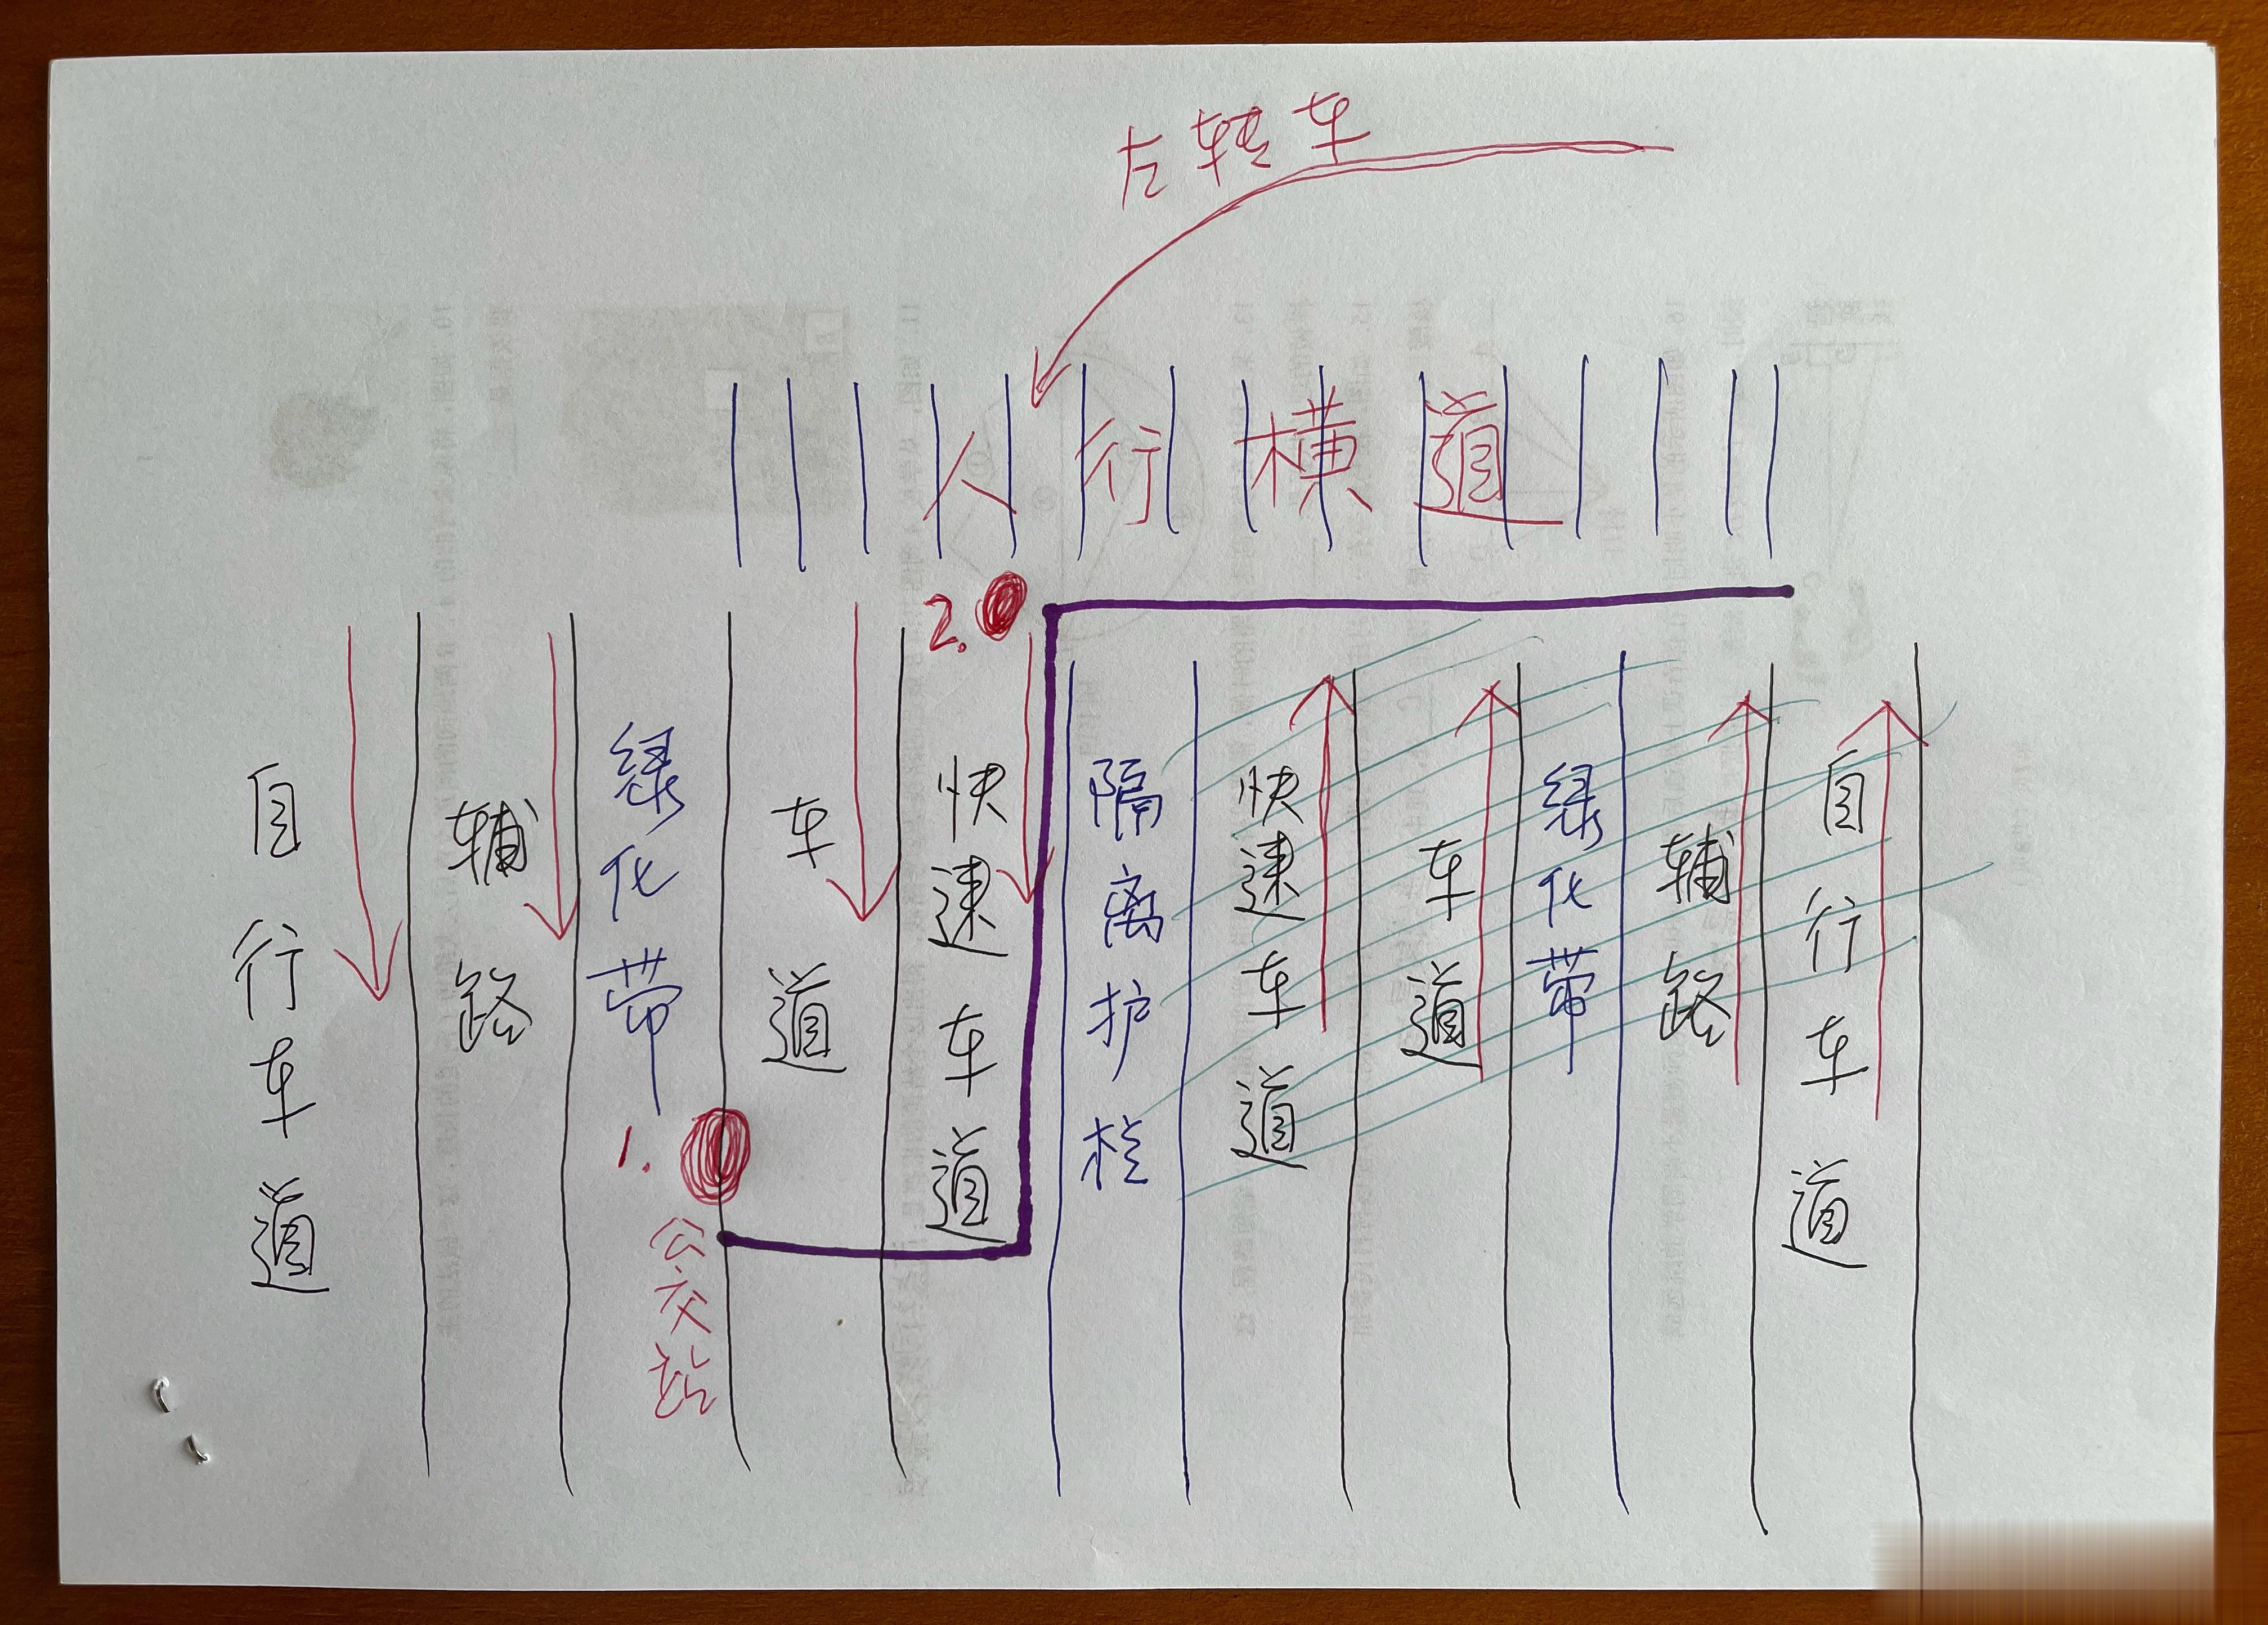 左转车
人行横道
2.
自行车道
辅路
绿化带
车道
快速车道
隔离护栏
快速车道
车道
绿化带
辅路
自行车道
1.
公交站